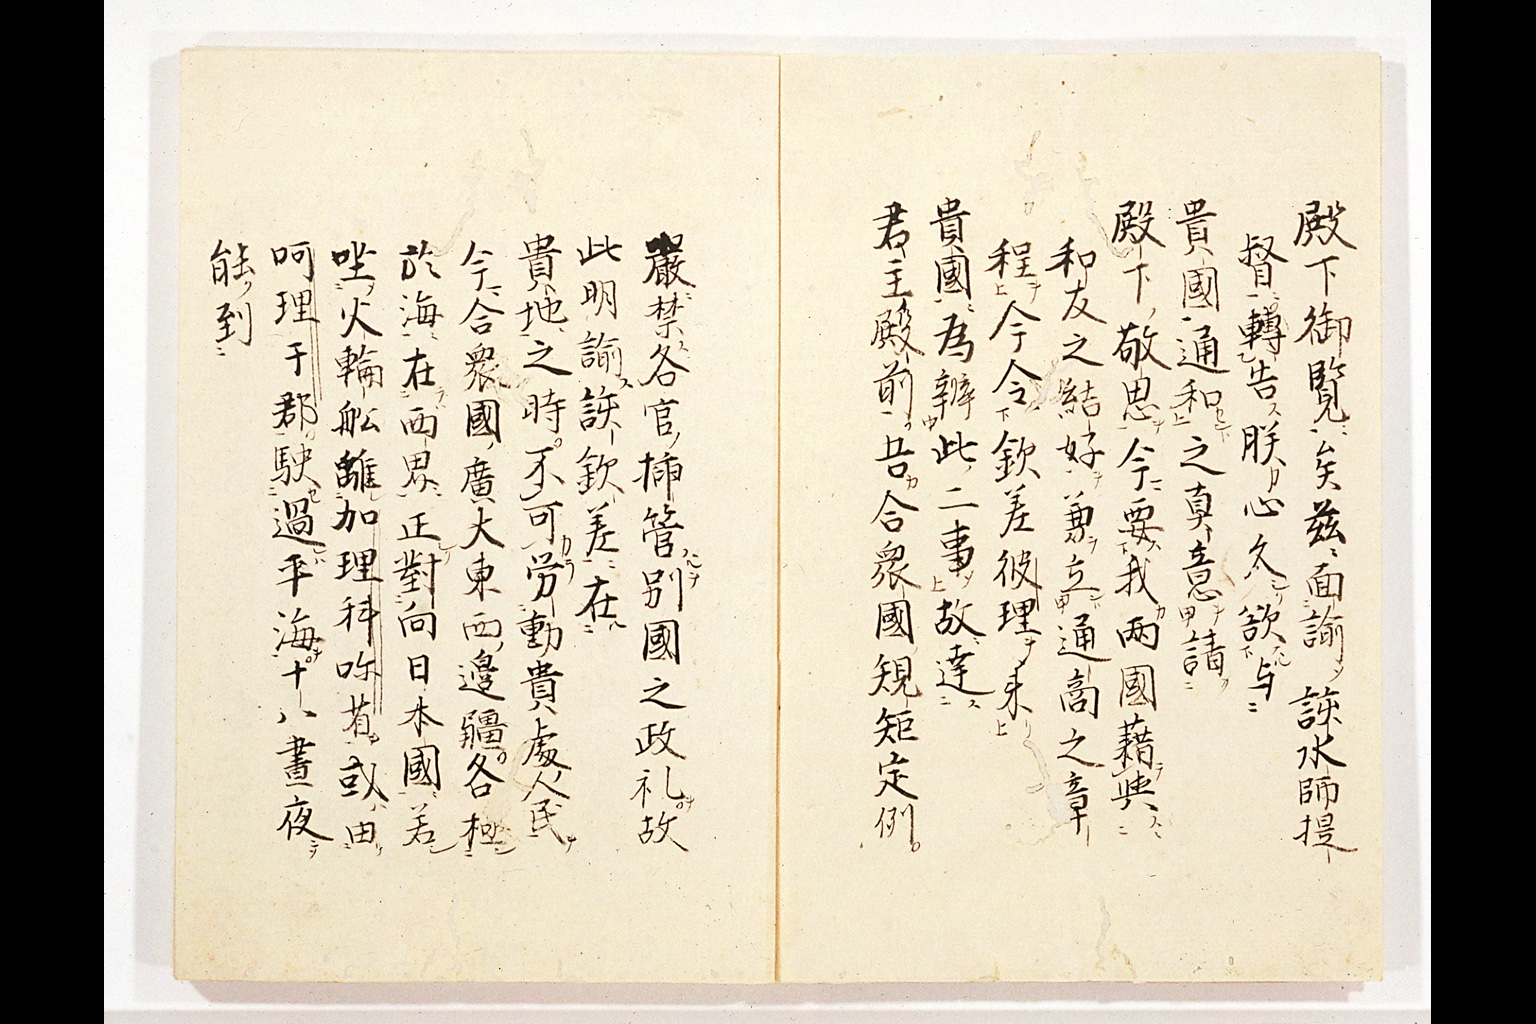 殿下御覧矣茲面諭該水師提
督轉告朕心久欲与
貴國通和之真意請
殿下敬思今要我両國藉典
和友之結好兼立通商之章
程今令欽差彼理来
貴國為辦此二事故達
君主殿前吾合衆國規矩定例
嚴禁各官揷管別國之政礼故
此明諭該欽差在
貴地之時不可労動貴處人民
今合衆國廣大東西邊疆各極
於海在西界正對向日本國若
坐火輪舩離加理科呀省或由
呵理干郡駛過平海十八晝夜
能到